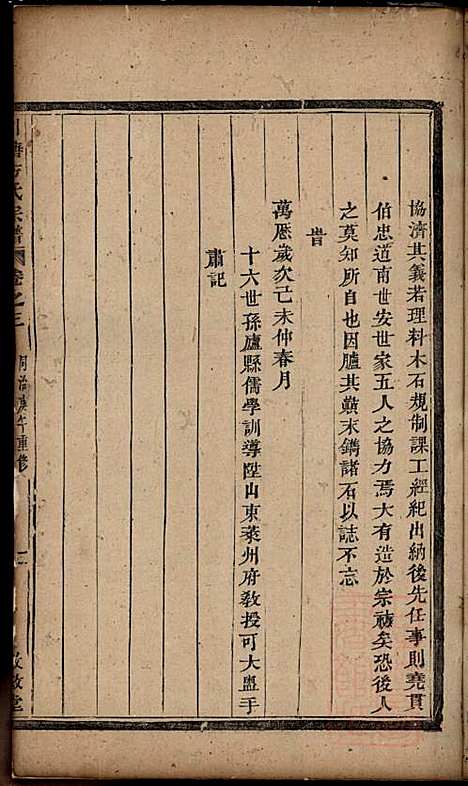 協濟其義若理料木石規制課工經紀出納後先任事則堯貫
伯忠道南世安世家五人之協力焉大有造於宗祊矣恐後人
之莫知所自也因臚其顛末鐫諸石以誌不忘
旹
萬厯歲次己未仲春月
十六世孫廬縣儒學訓導陞山東萊州府教授可大盥手
肅記
方氏宗譜
卷之三
同治庚午重修
敦堂